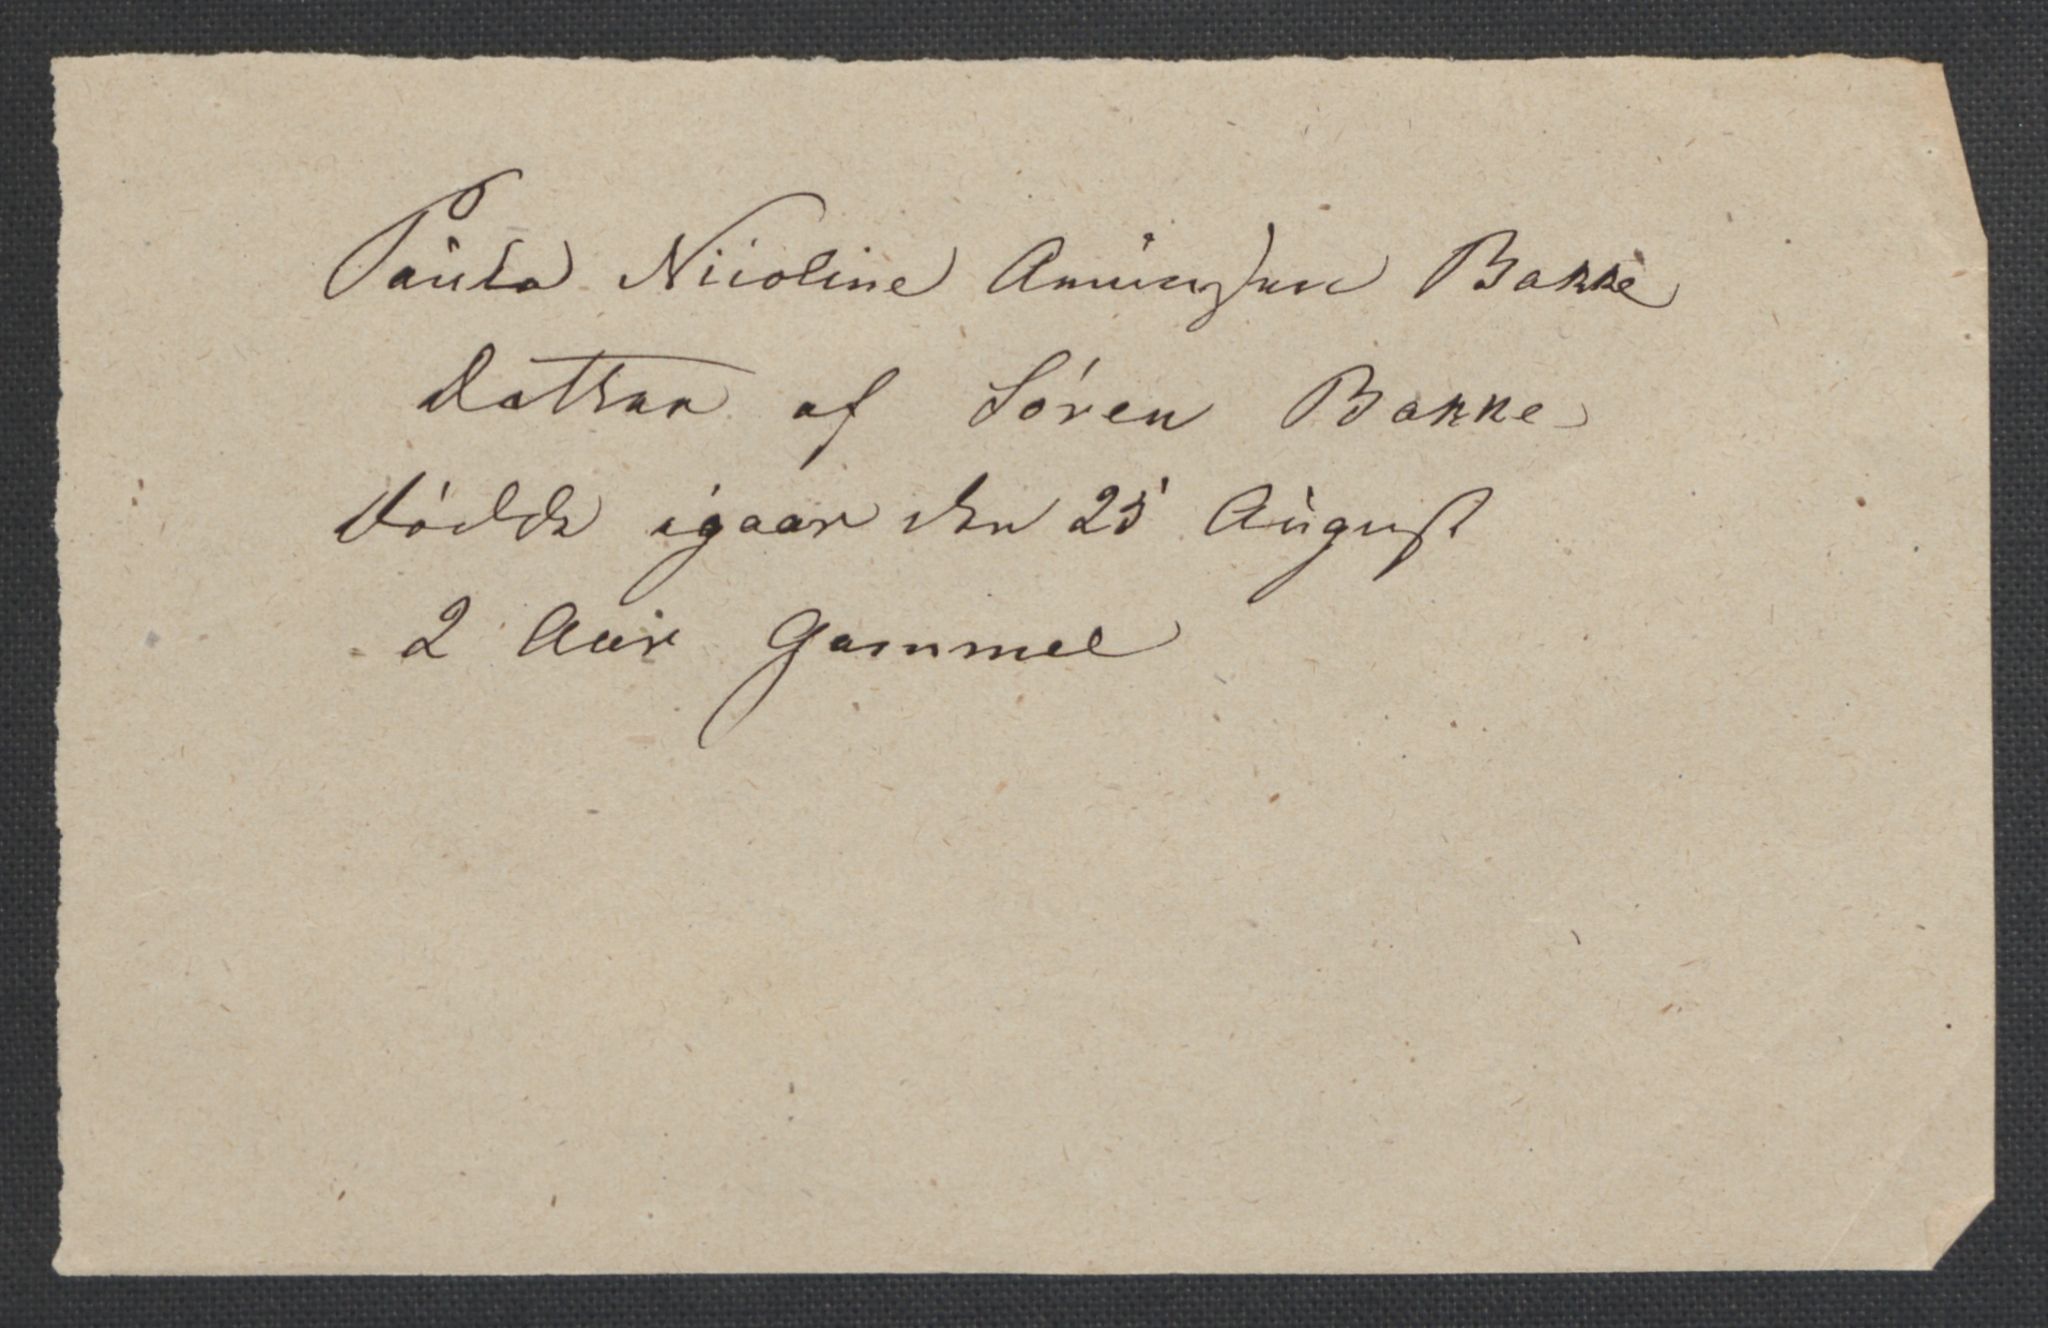 Paula Nicoline Amundsen Bakke
datter af Søren Bakke
dødde igaar den 25 August
2 Aar Gammel